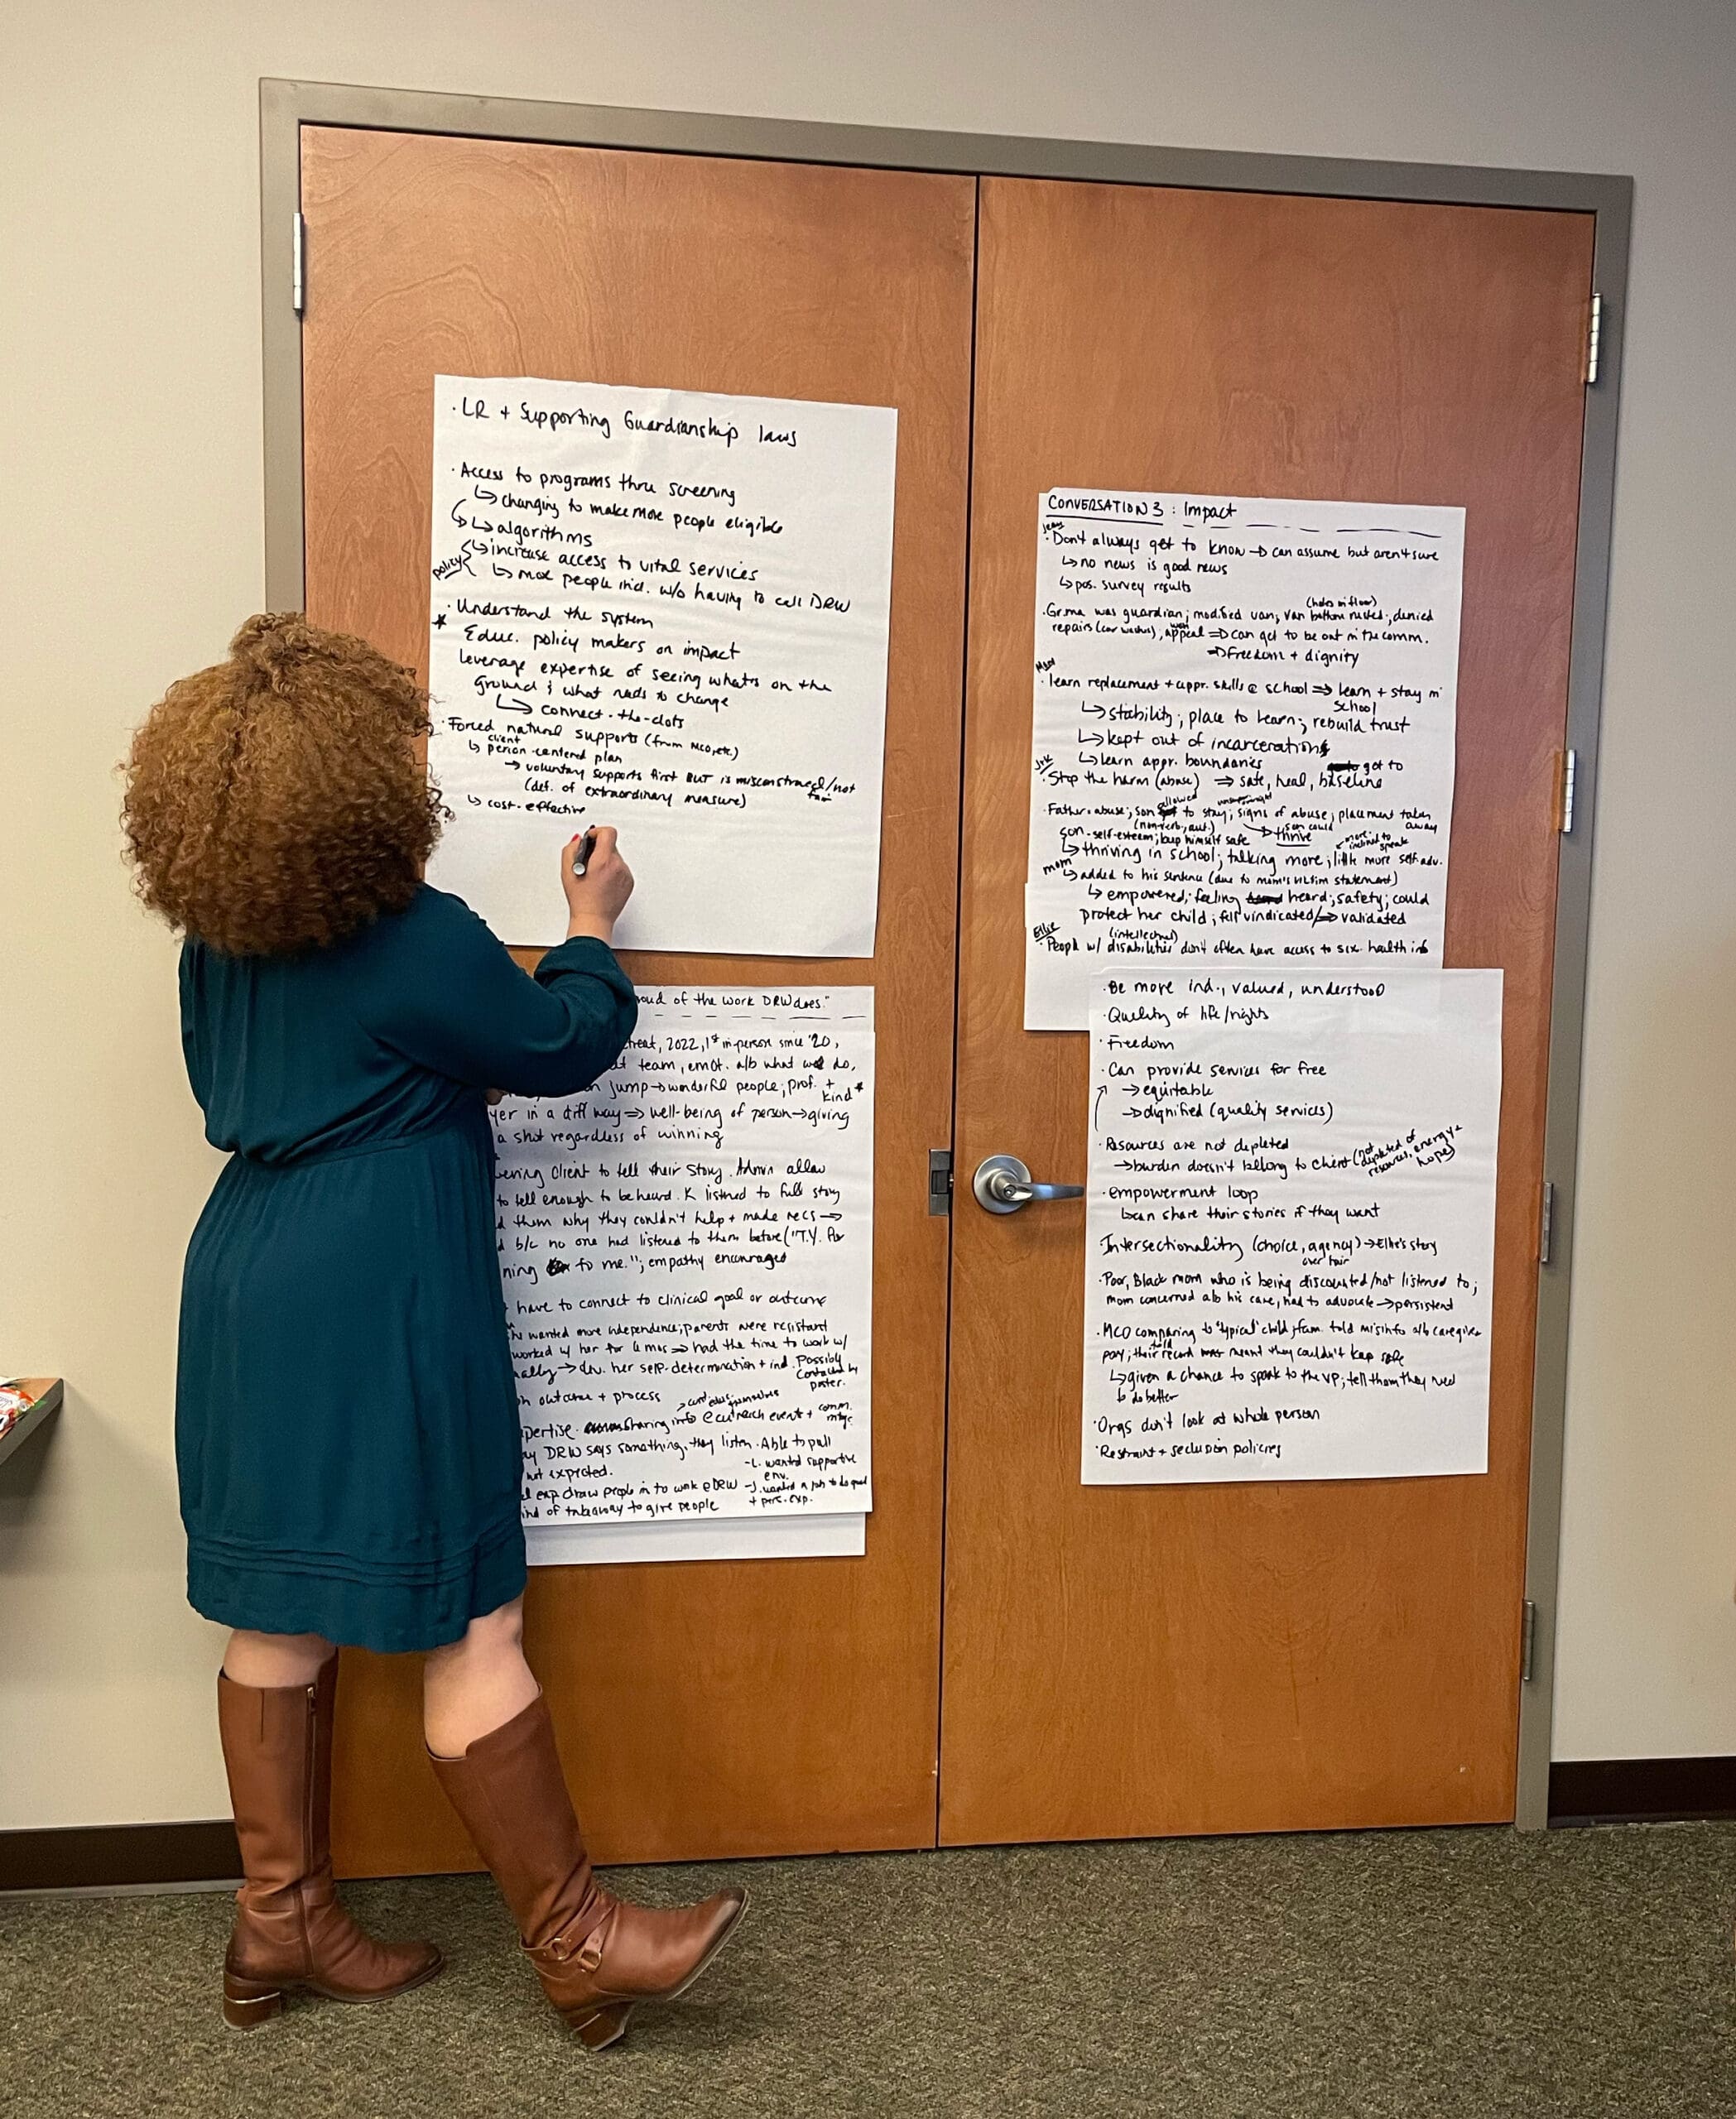 · LR + Supporting Guardianship laws
· Access to programs thru screening
↳ changing to make more people eligible
↳ algorithms
policy
↳ increase access to vital services
↳ more people ind. w/o having to call DRW
· Understand the system
* Educ. policy makers on impact
leverage expertise of seeing what's on the
ground & what needs to change
↳ connect-the-dots
· Forced natural supports (from MCO, etc.)
client
↳ person-centered plan
→ voluntary supports first BUT is misconstrued/not
(def. of extraordinary measure)
↳ cost-effective
oud of the work DRW does."
treat, 2022, 1st in-person since '20,
team, emot. a/b what we do,
jump → wonderful people; prof. +
kind *
yer in a diff way ⇒ well-being of person → giving
a shot regardless of winning
ering client to tell their story. Admin allow
to tell enough to be heard. K listened to full story
d them why they couldn't help + made recs →
d b/c no one had listened to them before ("T.Y. for
ning to me."; empathy encouraged
have to connect to clinical goal or outcome
wanted more independence; parents were resistant
worked w/ her for 6 mos → had the time to work w/
ally → dev. her self-determination + ind. Possibly
contacted by
poster.
outcome + process
pertise. sharing info @ outreach event + comm.
mtgs.
ay DRW says something, they listen. Able to pull
not expected.
-L. wanted supportive
env.
exp draw people in to work @ DRW
-J. wanted a job to do good
+ pers. exp.
ind of takeaway to give people
CONVERSATION 3: Impact
· Don't always get to know → can assume but aren't sure
↳ no news is good news
↳ pos. survey results
(holes in floor)
· Grma was guardian; modified van; van bottom rusted; denied
repairs (car washes), appeal ⇒ can get to be out in the comm.
won
⇒ Freedom + dignity
· learn replacement + appr. skills @ school ⇒ learn + stay in
school
↳ stability; place to learn; rebuild trust
↳ kept out of incarceration
↳ learn appr. boundaries
got to
· Stop the harm (abuse) ⇒ safe, heal, baseline
· Father-abuse; son allowed to stay; signs of abuse; placement taken
away
(non-verb, aut.)
son could
thrive
son - self-esteem; keep himself safe
more inclined to speak
↳ thriving in school; talking more; little more self-adv.
mom
↳ added to his sentence (due to mom's victim statement)
↳ empowered; feeling heard; safety; could
protect her child; felt vindicated/⇒ validated
Ellie
(intellectual)
· People w/ disabilities don't often have access to sex. health info
· Be more ind., valued, understood
· Quality of life/rights
· Freedom
· Can provide services for free
→ equitable
→ dignified (quality services)
· Resources are not depleted
→ burden doesn't belong to client (not depleted of resources, energy + hope)
· empowerment loop
↳ can share their stories if they want
Intersectionality (choice, agency) → Ellie's story
over hair
· Poor, Black mom who is being discounted/not listened to;
mom concerned a/b his care, had to advocate → persistent
· MCO comparing to "typical" child; fam. told misinfo a/b caregiver
pay; their record meant they couldn't keep safe
↳ given a chance to speak to the VP; tell them they need
to do better
· Orgs don't look at whole person
· Restraint + seclusion policies